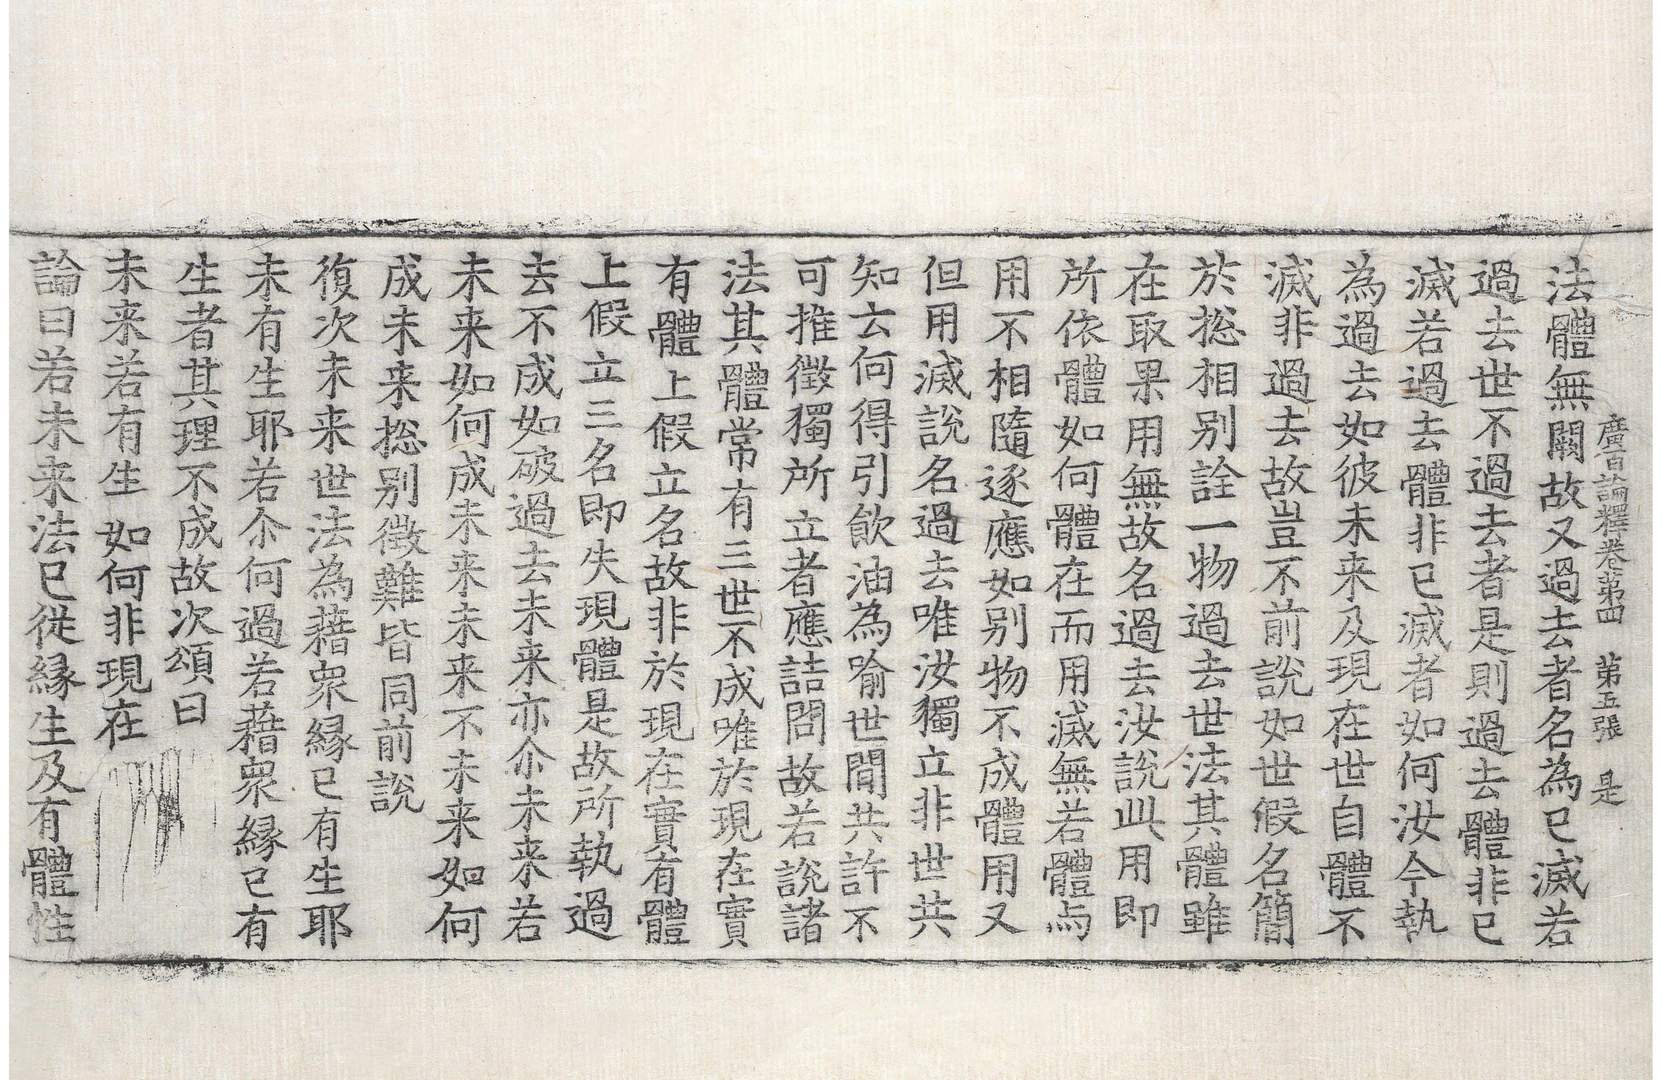 廣百論釋卷第四　第五張　是
法體無闕故又過去者名為已滅若
過去世不過去者是則過去體非已
滅若過去體非已滅者如何汝今執
為過去如彼未来及現在世自體不
滅非過去故豈不前說如世假名簡
於捴相別詮一物過去世法其體雖
在取果用無故名過去汝說此用即
所依體如何體在而用滅無若體与
用不相隨逐應如別物不成體用又
但用滅說名過去唯汝獨立非世共
知云何得引飲油為喻世間共許不
可推徵獨所立者應詰問故若說諸
法其體常有三世不成唯於現在實
有體上假立名故非於現在實有體
上假立三名即失現體是故所執過
去不成如破過去未来亦尒未来若
未来如何成未来未来不未来如何
成未来捴別徵難皆同前說
復次未来世法為藉眾緣已有生耶
未有生耶若尒何過若藉眾緣已有
生者其理不成故次頌曰
未来若有生　如何非現在
論曰若未来法已從緣生及有體性